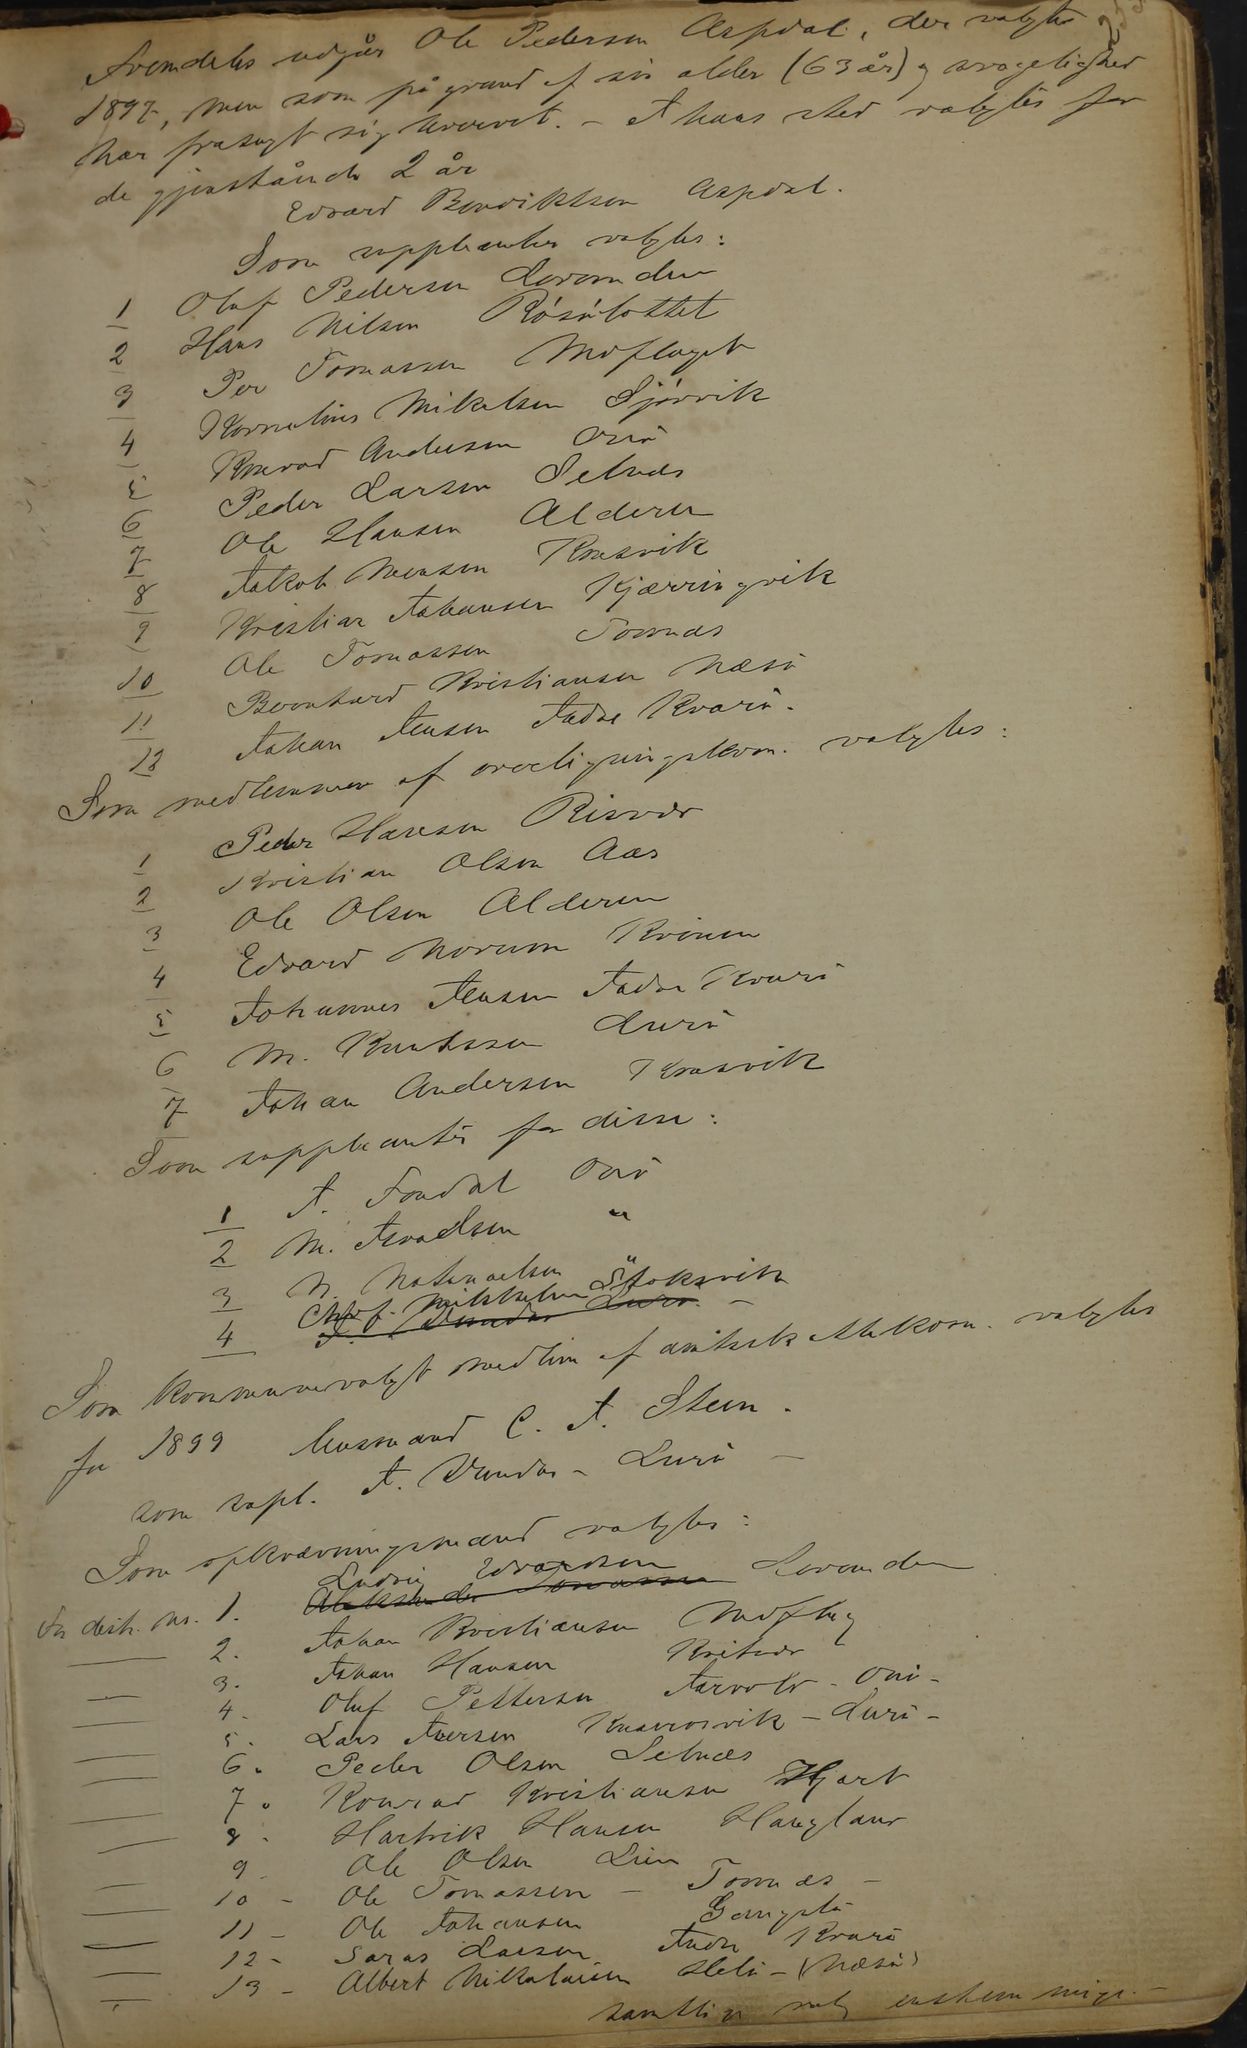 Fremdeles udgår Ole Pedersen Aspdal, der valgtes
1897, men som på grund af sin alder (63 år) og svagelighed
har frasagt sig hvervet. - I hans sted valgtes for
de gjenstående 2 år
Edvard Bendiktsen Aspdal.
Som suppleanter valgtes:
1 Oluf Pedersen Lovunden
2 Hans Nilsen Råsåtottet
3 Per Tomassen Moflaget
4 Kornelius Mikalsen Sjøvik
5 Konrad Andersen Onø
6 Peder Larsen Selnæs
7 Ole Hansen Alderen
8 Jakob Monsen Konsvik
9 Kristian Johansen Kjærringvik
10 Ole Tomassen Tonnæs
11 Bernhard Kristiansen Næsø
12 Johan Jensen Indre Kvarø.
Som medlemmer af overligningskom. valgtes:
1 Peder Hansen Risvær
2 Kristian Olsen Aas
3 Ole Olsen Alderen
4 Edvard Norum Kvinen
5 Johannes Jensen Indre Kvarø
6 M. Knutssen Lurø
7 Johan Andersen Konsvik
Som suppleanter for disse:
1 I. Fondal Onø
2 M. Israelsen "
3 N. Natanaelsen "
4 Chrf. Mikkelsen Stoksvik
J. Dundas Lurø. -
Som kommunevalgt medlem af amtsskattekom. valgtes
for 1899 lensmand C. A. Steen.
som supl. I. Dundas - Lurø -
Som opkrævningsmænd valgtes:
Ludvig Edvardsen
for distr. No. 1. Aleksander Tomassen Lovunden
2. Johan Kristiansen Moflag
3. Johan Hansen Kvitvær
4. Oluf Pettersen Jarvold - Onø -
5. Lars Iversen Kvarøsvik - Lurø -
6. Peder Olsen Selnæs
7. Konrad Kristiansen Hjart
8. Hartvik Hansen Haugland
9. Ole Olsen Lien
10 - Ole Tomassen - Tonnæs -
11 - Ole Johansen Gangstø
12 - Saras Larsen Indre Kvarø
13 - Albert Nikolaisen Helø - (Næsø)
samtlige valg enstemmige. -